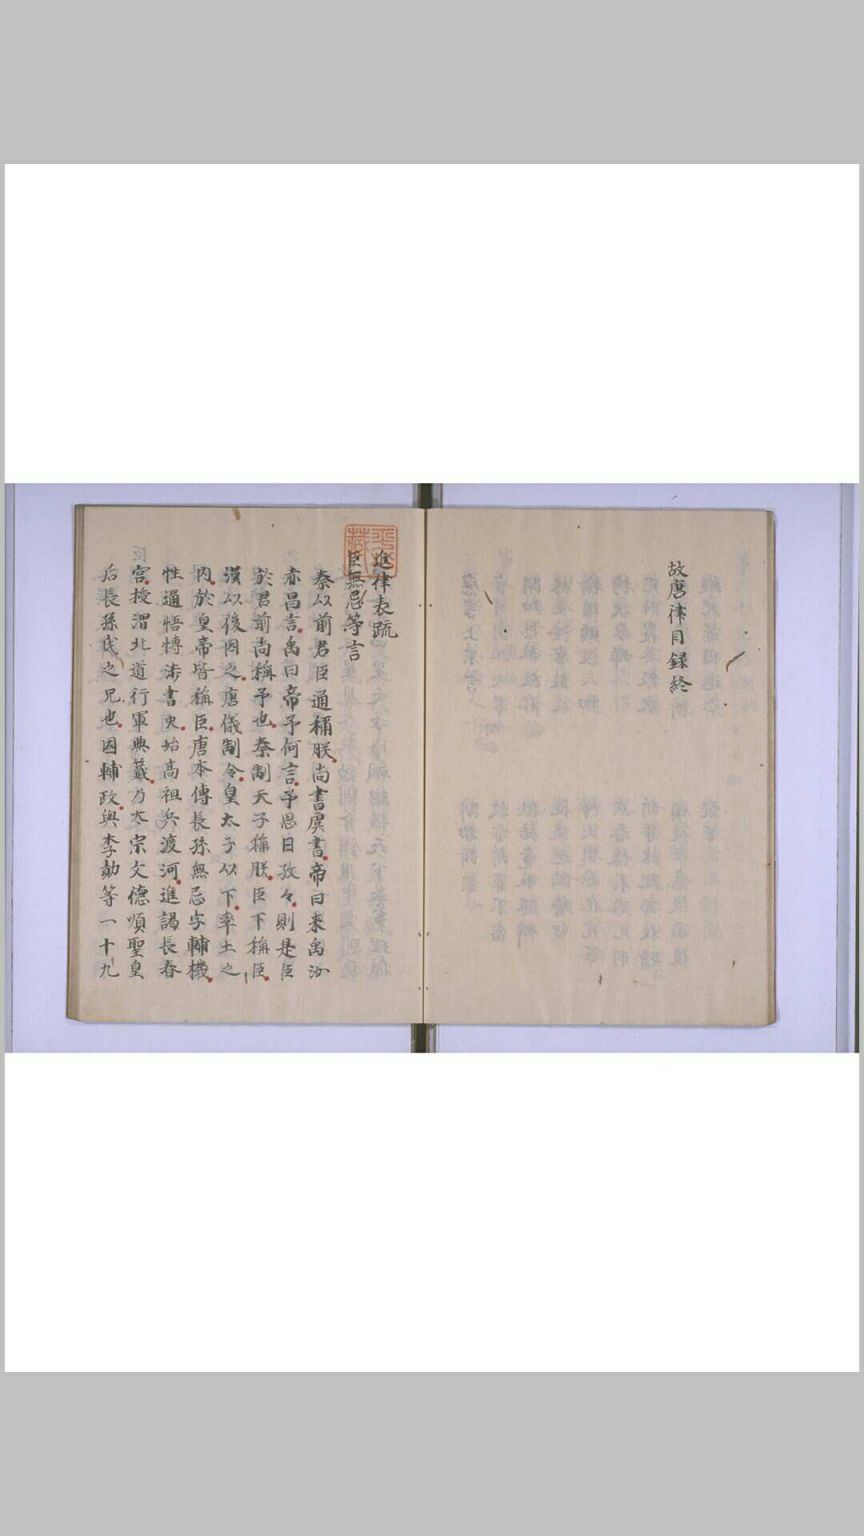 故唐律目録終
進律表疏
臣無忌等言
秦以前君臣通稱朕尚書虞書帝曰来禹汝
亦昌言禹曰帝予何言予思日孜々則是臣
於君前尚稱予也秦制天子稱朕臣下稱臣
漢以後因之唐儀制令皇太子以下率土之
内於皇帝皆稱臣唐本傳長孫無忌字輔機
性通悟博渉書史始髙祖兵渡河進謁長春
宮授渭北道行軍典籤乃太宗文德順聖皇
后長孫氏之兄也因輔政與李勣等一十九